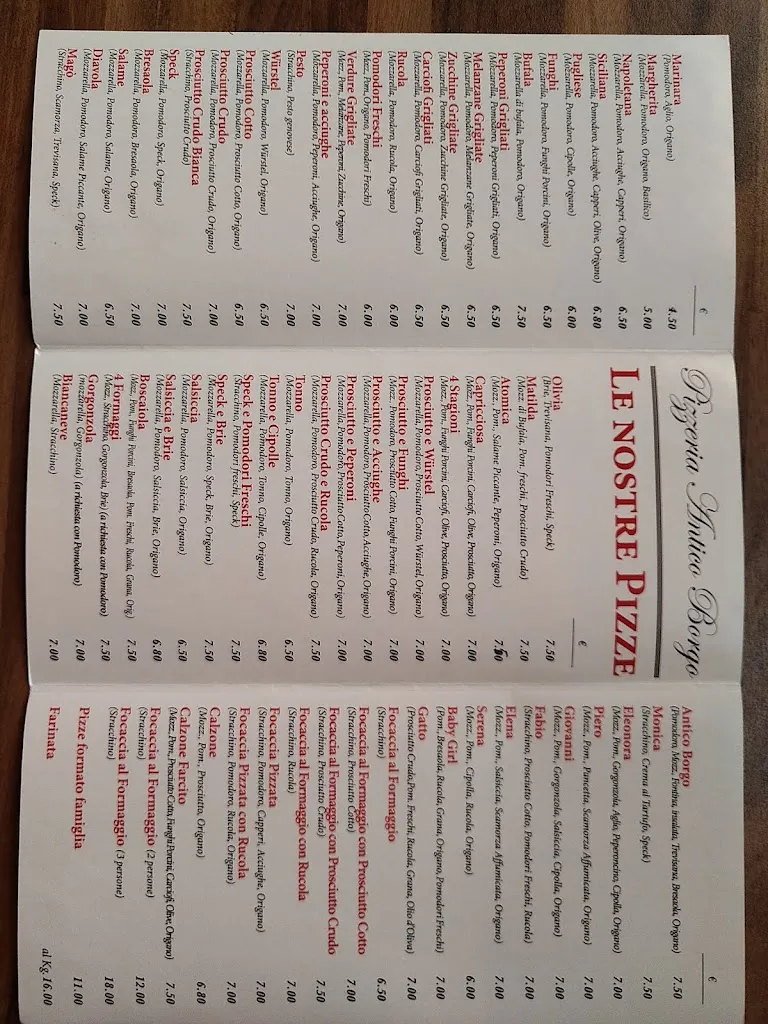 €
Marinara
(Pomodoro, Aglio, Origano) 4.50
Margherita
(Mozzarella, Pomodoro, Origano, Basilico) 5.00
Napoletana
(Mozzarella, Pomodoro, Acciughe, Capperi, Origano) 6.50
Siciliana
(Mozzarella, Pomodoro, Acciughe, Capperi, Olive, Origano) 6.80
Pugliese
(Mozzarella, Pomodoro, Cipolle, Origano) 6.00
Funghi
(Mozzarella, Pomodoro, Funghi Porcini, Origano) 6.50
Bufala
(Mozzarella di bufala, Pomodoro, Origano) 7.50
Peperoni Grigliati
(Mozzarella, Pomodoro, Peperoni Grigliati, Origano) 6.50
Melanzane Grigliate
(Mozzarella, Pomodoro, Melanzane Grigliate, Origano) 6.50
Zucchine Grigliate
(Mozzarella, Pomodoro, Zucchine Grigliate, Origano) 6.50
Carciofi Grigliati
(Mozzarella, Pomodoro, Carciofi Grigliati, Origano) 6.50
Rucola
(Mozzarella, Pomodoro, Rucola, Origano) 6.00
Pomodori Freschi
(Mozz., Pom., Origano, Pomodori Freschi) 6.00
Verdure Grigliate
(Mozz., Pom., Melanzane, Peperoni, Zucchine, Origano) 7.00
Peperoni e acciughe
(Mozzarella, Pomodoro, Peperoni, Acciughe, Origano) 7.00
Pesto
(Stracchino, Pesto genovese) 7.00
Würstel
(Mozzarella, Pomodoro, Würstel, Origano) 6.50
Prosciutto Cotto
(Mozzarella, Pomodoro, Prosciutto Cotto, Origano) 6.50
Prosciutto Crudo
(Mozzarella, Pomodoro, Prosciutto Crudo, Origano) 7.00
Prosciutto Crudo Bianca
(Stracchino, Prosciutto Crudo) 7.50
Speck
(Mozzarella, Pomodoro, Speck, Origano) 7.00
Bresaola
(Mozzarella, Pomodoro, Bresaola, Origano) 7.00
Salame
(Mozzarella, Pomodoro, Salame, Origano) 6.50
Diavola
(Mozzarella, Pomodoro, Salame Piccante, Origano) 7.00
Magò
(Stracchino, Scamorza, Trevisana, Speck) 7.50
Pizzeria Antico Borgo
LE NOSTRE PIZZE
€
Olivia
(Brie, Trevisana, Pomodori Freschi, Speck) 7.50
Matilda
(Mozz. di Bufala, Pom. freschi, Prosciutto Crudo) 7.50
Atomica
(Mozz., Pom., Salame Piccante, Peperoni, Origano)
Capricciosa
(Mozz., Pom., Funghi Porcini, Carciofi, Olive, Prosciutto, Origano) 7.00
4 Stagioni
(Mozz., Pom., Funghi Porcini, Carciofi, Olive, Prosciutto, Origano) 7.00
Prosciutto e Würstel
(Mozzarella, Pomodoro, Prosciutto Cotto, Würstel, Origano) 7.00
Prosciutto e Funghi
(Mozz., Pomodoro, Prosciutto Cotto, Funghi Porcini, Origano) 7.00
Prosciutto e Acciughe
(Mozzarella, Pomodoro, Prosciutto Cotto, Acciughe, Origano) 7.00
Prosciutto e Peperoni
(Mozzarella, Pomodoro, Prosciutto Cotto, Peperoni, Origano) 7.00
Prosciutto Crudo e Rucola
(Mozzarella, Pomodoro, Prosciutto Crudo, Rucola, Origano) 7.50
Tonno
(Mozzarella, Pomodoro, Tonno, Origano) 6.50
Tonno e Cipolle
(Mozzarella, Pomodoro, Tonno, Cipolle, Origano) 6.80
Speck e Pomodori Freschi
(Stracchino, Pomodori freschi, Speck) 7.50
Speck e Brie
(Mozzarella, Pomodoro, Speck, Brie, Origano) 7.50
Salsiccia
(Mozzarella, Pomodoro, Salsiccia, Origano) 6.50
Salsiccia e Brie
(Mozzarella, Pomodoro, Salsiccia, Brie, Origano) 6.80
Boscaiola
(Mozz., Pom., Funghi Porcini, Bresaola, Pom. Freschi, Rucola, Grana, Orig.) 7.50
4 Formaggi
(Mozz., Stracchino, Gorgonzola, Brie) (a richiesta con Pomodoro) 7.50
Gorgonzola
(mozzarella, Gorgonzola) (a richiesta con Pomodoro) 7.00
Biancaneve
(Mozzarella, Stracchino) 7.00
€
Antico Borgo
(Pomodoro, Mozz., Fontina, insalata, Trevisana, Bresaola, Origano) 7.50
Monica
(Stracchino, Crema al Tartufo, Speck) 7.50
Eleonora
(Mozz., Pom., Gorgonzola, Aglio, Peperoncino, Cipolla, Origano) 7.00
Piero
(Mozz., Pom., Pancetta, Scamorza Affumicata, Origano) 7.00
Giovanni
(Mozz., Pom., Gorgonzola, Salsiccia, Cipolla, Origano) 7.00
Fabio
(Stracchino, Prosciutto Cotto, Pomodori Freschi, Rucola) 7.00
Elena
(Mozz., Pom., Salsiccia, Scamorza Affumicata, Origano) 7.00
Serena
(Mozz., Pom., Cipolla, Rucola, Origano) 6.00
Baby Girl
(Pom., Bresaola, Rucola, Grana, Origano, Pomodori Freschi) 7.00
Gatto
(Prosciutto Crudo, Pom. Freschi, Rucola, Grana, Olio d'Oliva) 7.00
Focaccia al Formaggio
(Stracchino) 6.50
Focaccia al Formaggio con Prosciutto Cotto
(Stracchino, Prosciutto Cotto) 7.00
Focaccia al Formaggio con Prosciutto Crudo
(Stracchino, Prosciutto Crudo) 7.50
Focaccia al Formaggio con Rucola
(Stracchino, Rucola) 7.00
Focaccia Pizzata
(Stracchino, Pomodoro, Capperi, Acciughe, Origano) 7.00
Focaccia Pizzata con Rucola
(Stracchino, Pomodoro, Rucola, Origano) 7.00
Calzone
(Mozz., Pom., Prosciutto, Origano) 6.80
Calzone Farcito
(Mozz., Pom., Prosciutto Cotto, Funghi Porcini, Carciofi, Olive, Origano) 7.50
Focaccia al Formaggio (2 persone)
(Stracchino) 12.00
Focaccia al Formaggio (3 persone)
(Stracchino) 18.00
Pizze formato famiglia 11.00
Farinata al Kg. 16.00